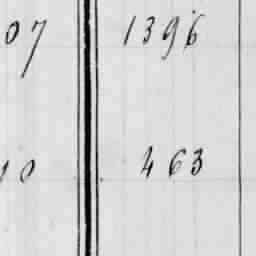 07 1396
10 463